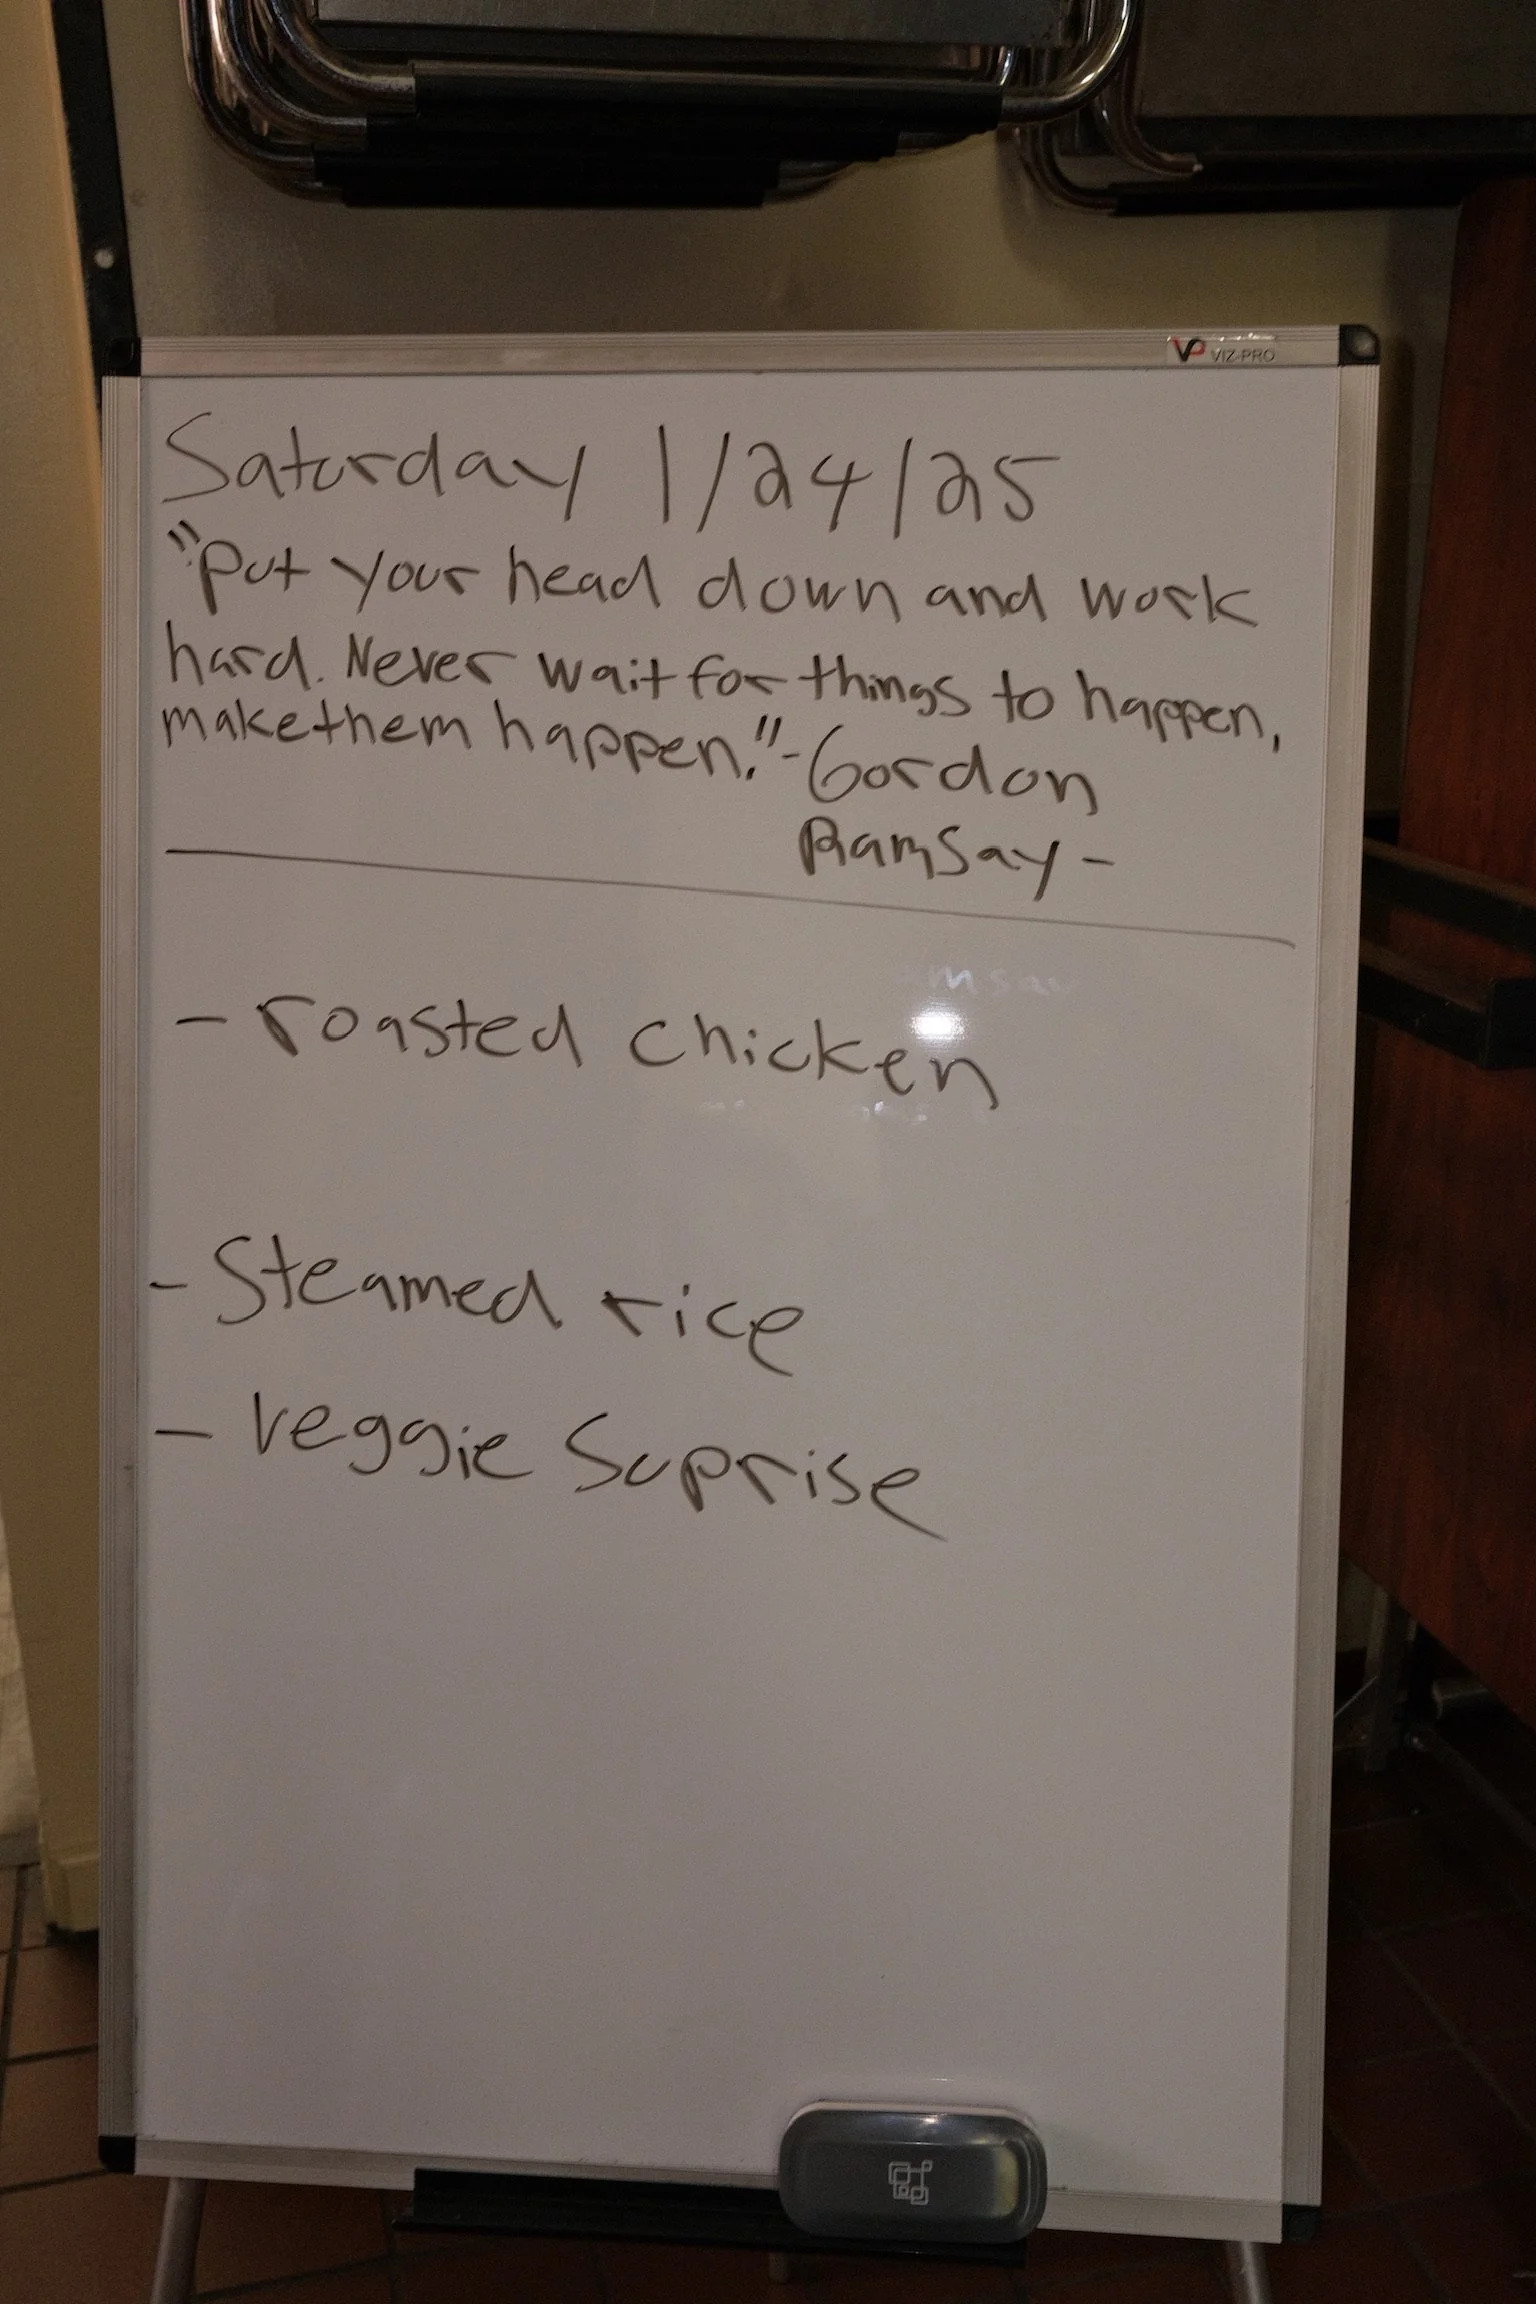 VP VIZ-PRO
Saturday 1/24/25
"Put your head down and work
hard. Never wait for things to happen,
make them happen." - Gordon
Ramsay -
- roasted chicken
- Steamed rice
- Veggie Suprise